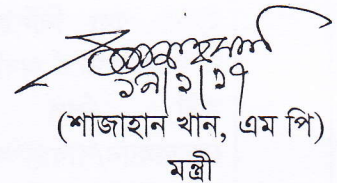 ১৯|২|১৭
(শাজাহান খান, এম পি)
মন্ত্রী